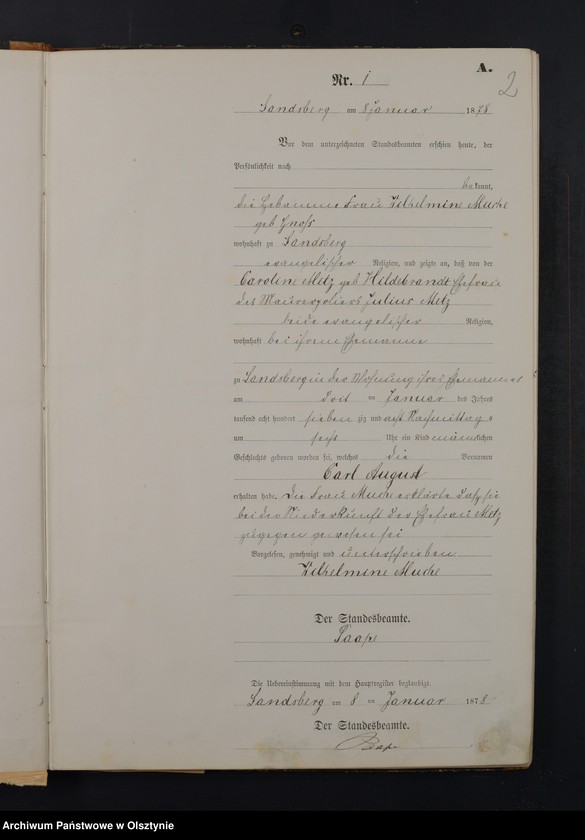 A.
2
Nr. 1
Landsberg am 8 Januar 1878
Vor dem unterzeichneten Standesbeamten erschien heute, der
Persönlichkeit nach
bekannt,
die Hebamme Frau Wilhelmine Mucke
geb
wohnhaft zu Landsberg
evangelischer Religion, und zeigte an, daß von der
Caroline Metz geb Hildebrandt Ehefrau
des Maurerpoliers Julius Metz
beide evangelischer Religion,
wohnhaft bei ihrem Ehemanne
zu Landsberg in der Wohnung ihres Ehemannes
am Januar des Jahres
tausend acht hundert sieben zig und acht Nachmittags
um sechs Uhr ein Kind männlichen
Geschlechts geboren worden sei, welches die Vornamen
Carl August
erhalten habe. Die Frau Mucke erklärte daß sie
bei der Niederkunft der Ehefrau Metz
zugegen gewesen sei
Vorgelesen, genehmigt und unterschrieben
Wilhelmine Mucke
Der Standesbeamte.
Die Uebereinstimmung mit dem Hauptregister beglaubigt.
Landsberg am 8 ten Januar 1878
Der Standesbeamte.
Archiwum Państwowe w Olsztynie